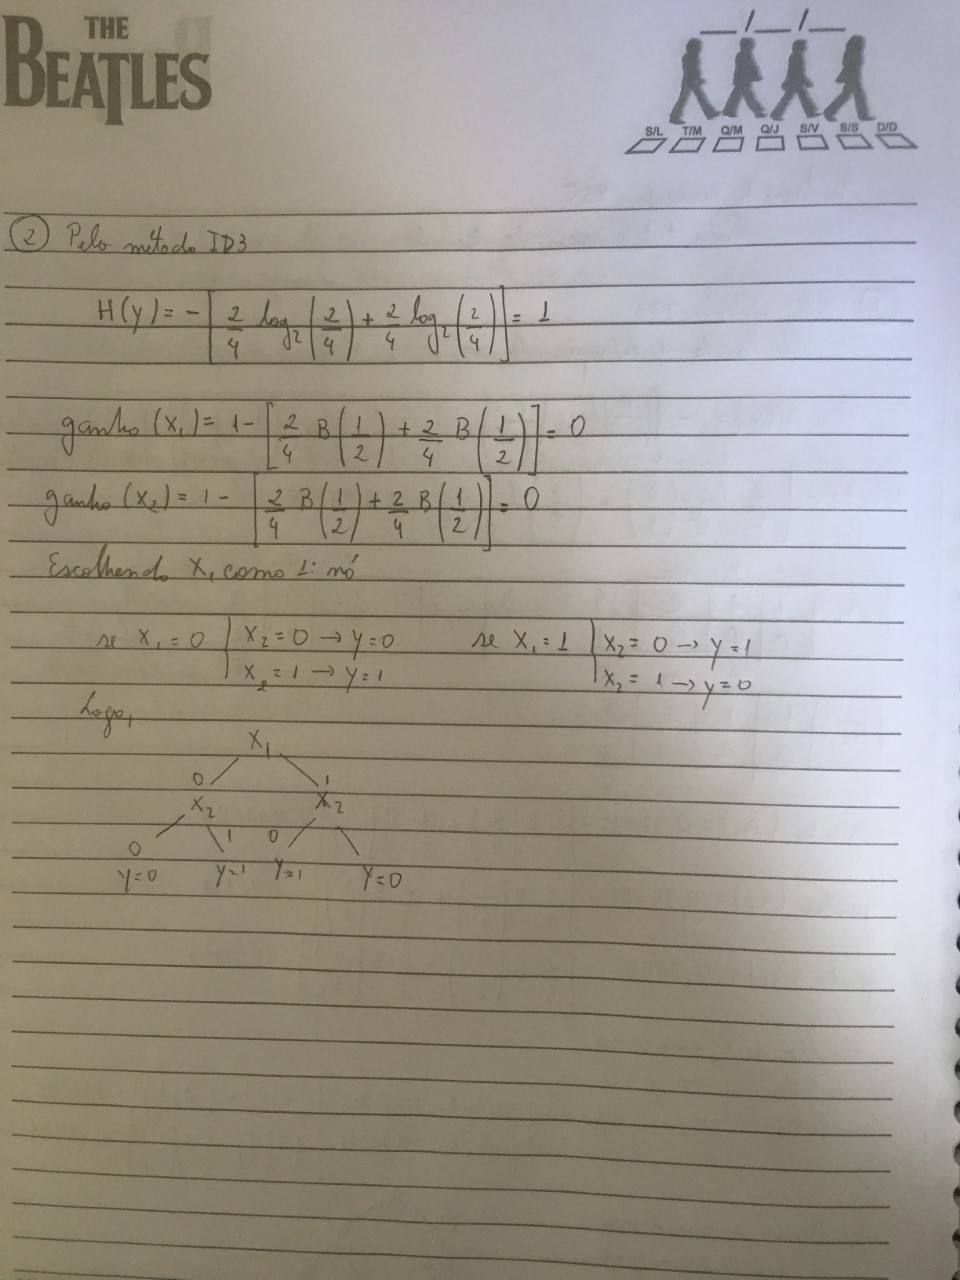 THE
BEATLES
S/L T/M Q/M Q/J S/V S/S D/D
② Pelo método ID3
H(y) = - [2/4 log₂ (2/4) + 2/4 log₂ (2/4)] = 1
ganho (X₁) = 1 - [2/4 B(1/2) + 2/4 B(1/2)] = 0
ganho (X₂) = 1 - [2/4 B(1/2) + 2/4 B(1/2)] = 0
Escolhendo X₁ como 1º nó
se X₁ = 0 | X₂ = 0 → y = 0 se X₁ = 1 | X₂ = 0 → y = 1
X₂ = 1 → y = 1 X₂ = 1 → y = 0
Logo,
X₁
0 1
X₂ X₂
0 1 0
y=0 y=1 y=1 y=0